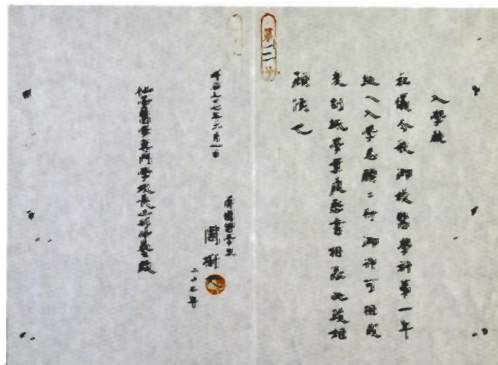 入學願
私儀今般御校醫學科第一年
級ヘ入學志願ニ付御許可相成
度別紙學業履歴書相添此段相
願候也
明治三十七年六月一日
周樹人
仙臺醫學專門學校長山形仲藝殿